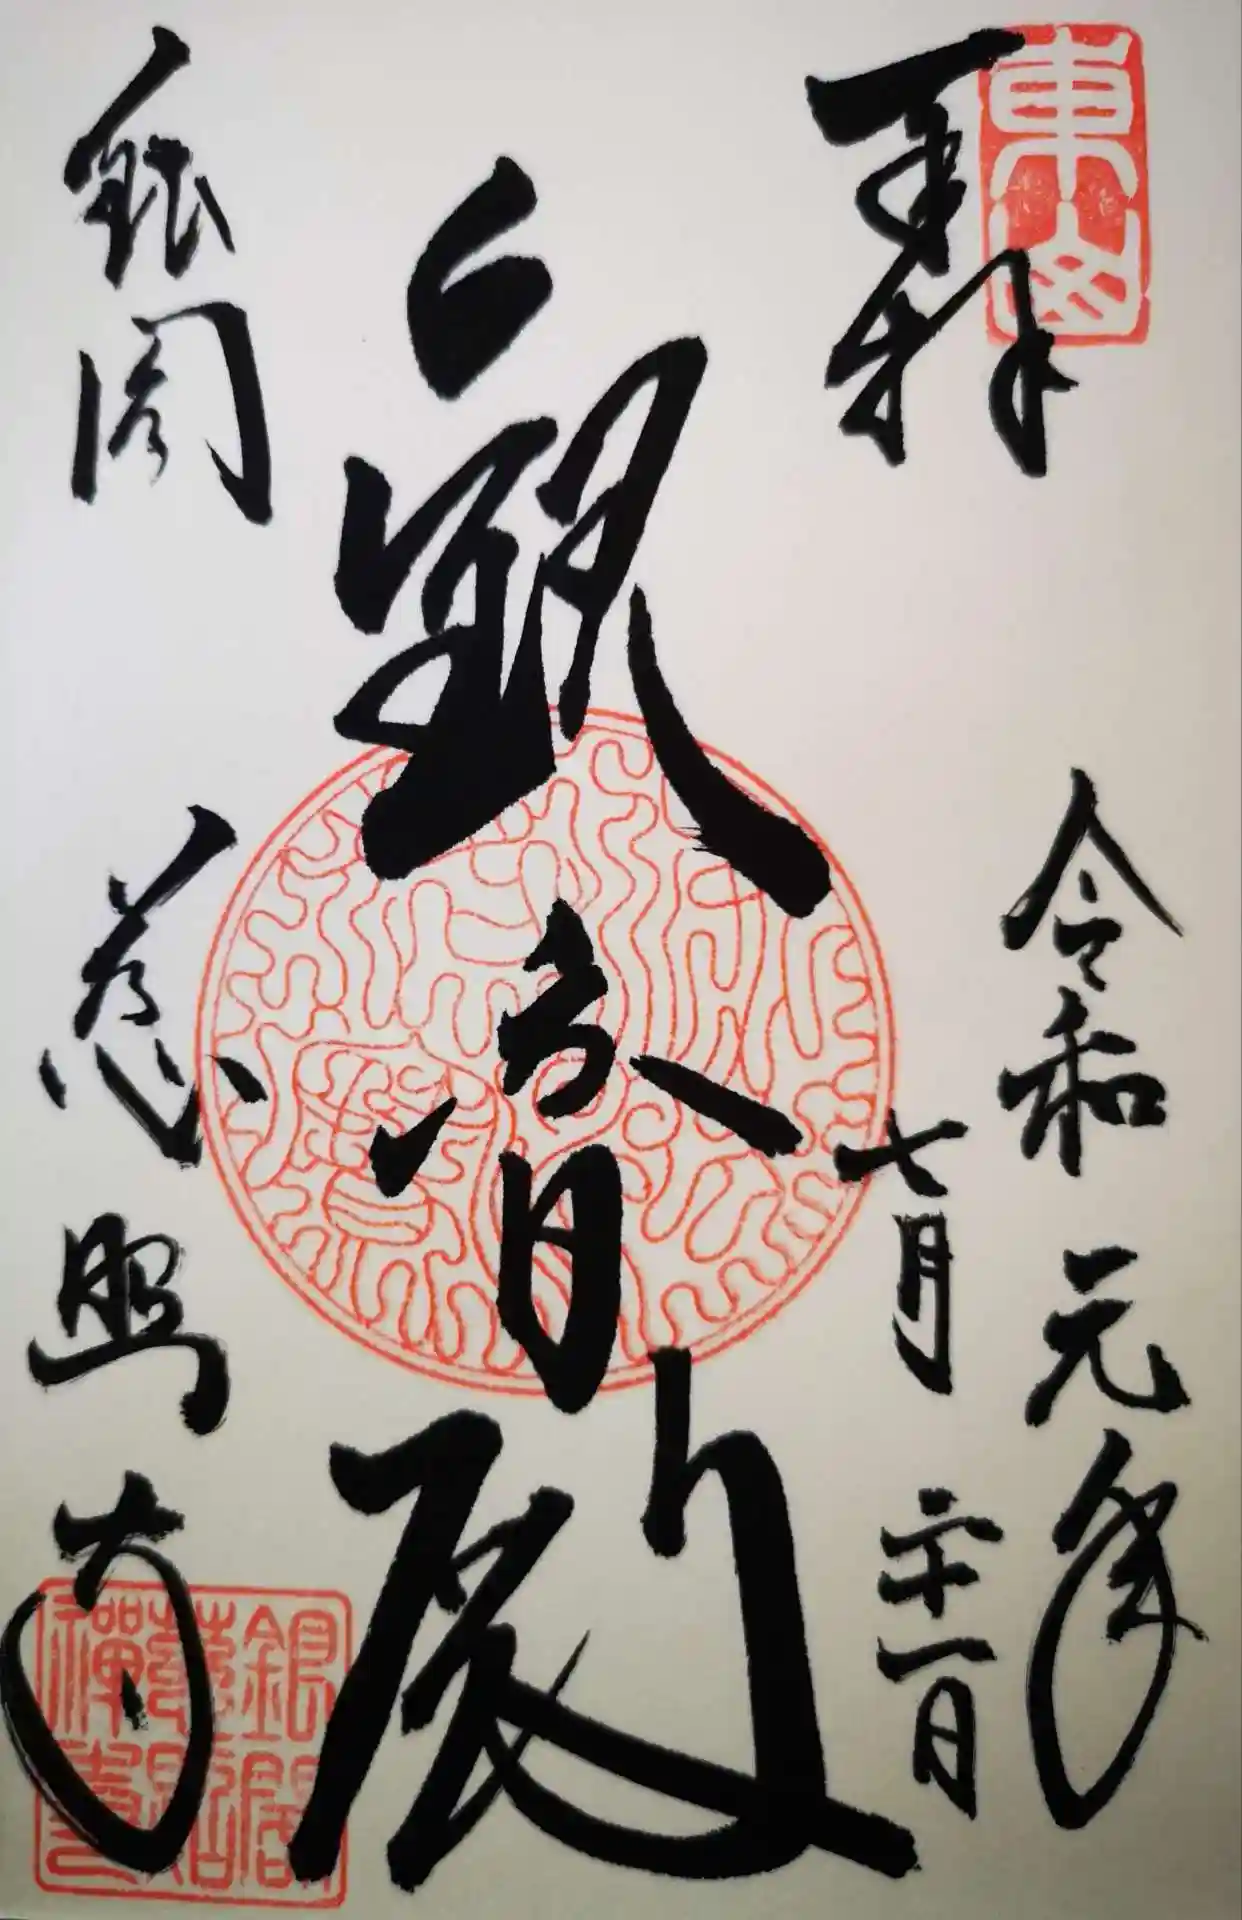 奉拝
東山
令和元年
七月二十一日
観音殿
銀閣
慈照寺
銀閣
慈照
禅寺